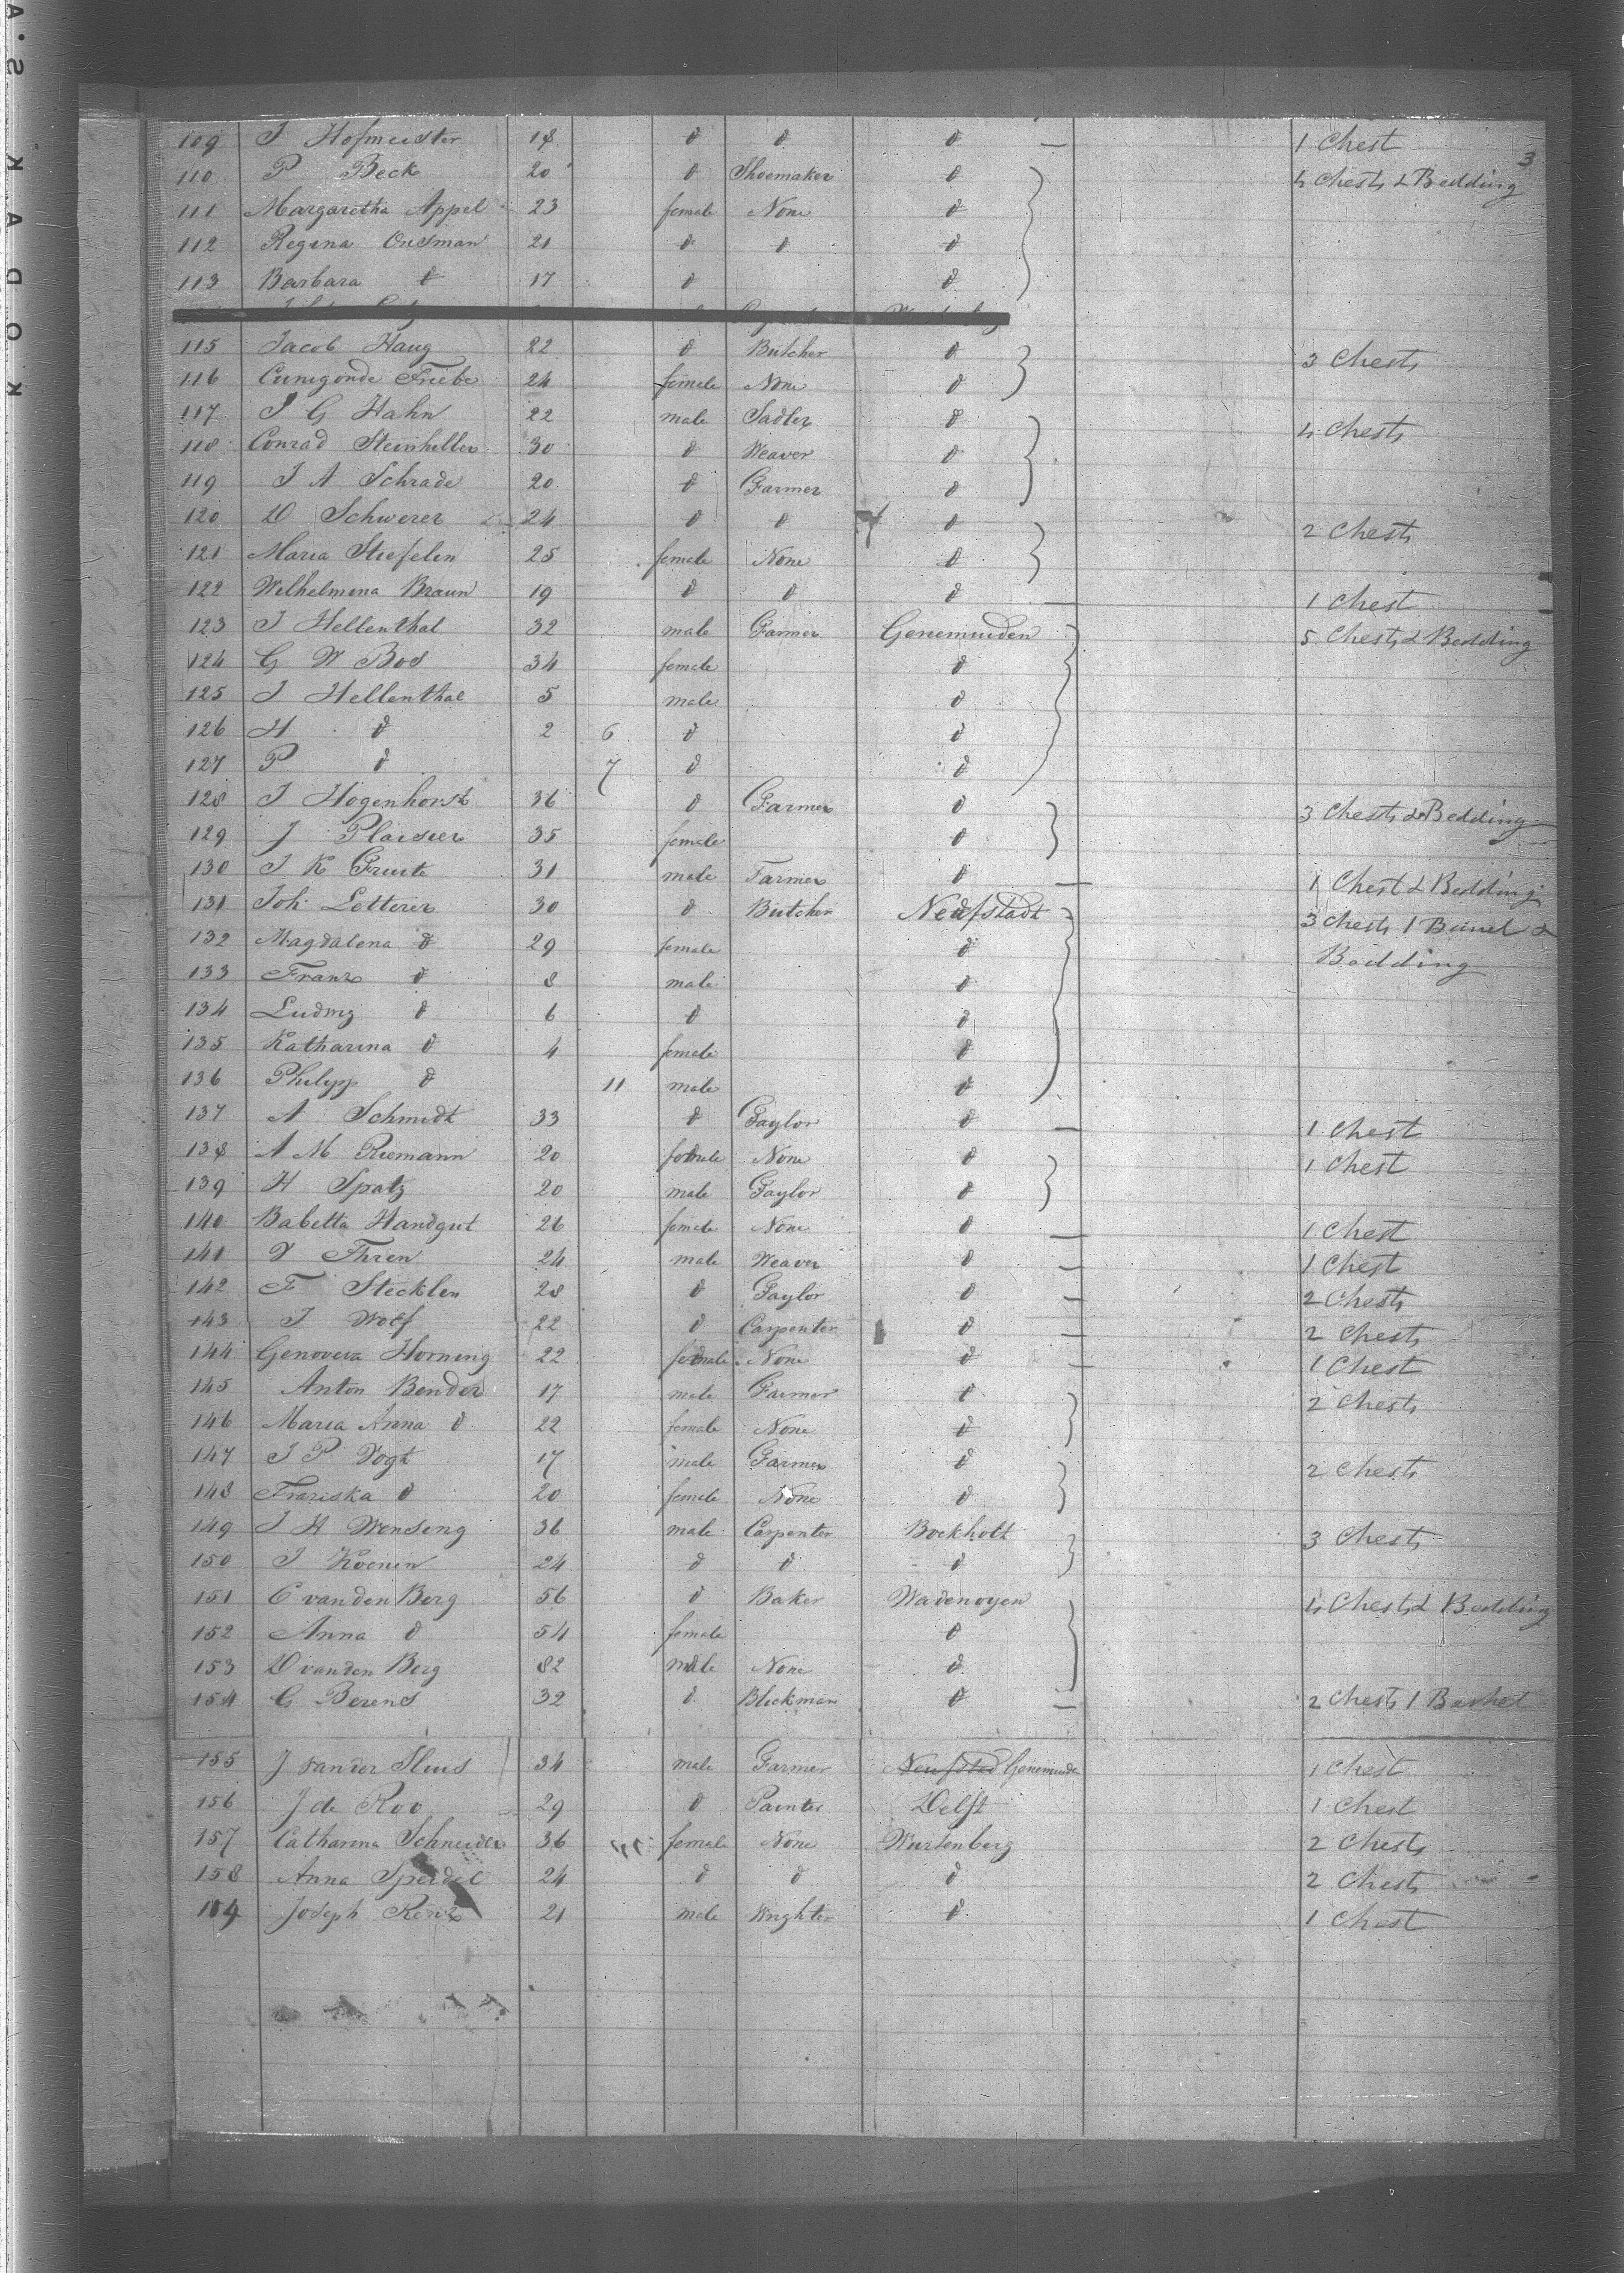 3
109 J Hofmeister 18 d d d — 1 Chest
110 P Beck 20 d Shoemaker d 4 Chests & Bedding
111 Margaretha Appel 23 female None d
112 Regina Ondman 21 d d d
113 Barbara d 17 d d
115 Jacob Haug 22 d Butcher d 3 Chests
116 Cunegonde Friebe 24 female None d
117 J G Hahn 22 male Sadler d 4 Chests
118 Conrad Steinhiller 30 d Weaver d
119 J A Schrade 20 d Farmer d
120 D Schwerer 24 d d d 2 Chests
121 Maria Stiefelin 25 female None d
122 Wilhelmina Braun 19 d d d — 1 Chest
123 J Hellenthal 32 male Farmer Genemuiden 5 Chests & Bedding
124 G W Bos 34 female d
125 J Hellenthal 5 male d
126 H d 2 6 d d
127 P d 7 d d
128 J Hogenhorst 36 d Farmer d 3 Chests & Bedding
129 J Plaisier 35 female d
130 J K Fruite 31 male Farmer d — 1 Chest & Bedding
131 Joh. Lotterer 30 d Butcher Neufstadt 3 Chests 1 Bunel &
132 Magdalena d 29 female d Bedding
133 Franz d 8 male d
134 Ludwig d 6 d d
135 Katharina d 4 female d
136 Philipp d 11 male d
137 A Schmidt 33 d Taylor d — 1 Chest
138 A M Riemann 20 female None d 1 Chest
139 H Spatz 20 male Taylor d
140 Babetta Handgut 26 female None d — 1 Chest
141 V Thren 24 male Weaver d — 1 Chest
142 F Stecklen 28 d Taylor d — 2 Chests
143 J Wolf 22 d Carpenter d — 2 Chests
144 Genoveva Horning 22 female None d — 1 Chest
145 Anton Bender 17 male Farmer d 2 Chests
146 Maria Anna d 22 female None d
147 J P Vogt 17 male Farmer d 2 Chests
148 Franziska d 20 female None d
149 J H Wensing 36 male Carpenter Bockholt 3 Chests
150 J Koenen 24 d d d
151 C van den Berg 56 d Baker Wadenoyen 4 Chests & Bedding
152 Anna d 54 female d
153 D van den Berg 82 male None d
154 G Berends 32 d Bleekman d — 2 Chests 1 Basket
155 J van der Sluis 34 male Farmer Neufsted Genemuide 1 Chest
156 J de Roo 29 d Painter Delft 1 Chest
157 Catharina Schneider 36 female None Wurtenberg 2 Chests
158 Anna Speidel 24 d d d 2 Chests
Joseph Renz 21 male Wrighter d 1 Chest
KODAK